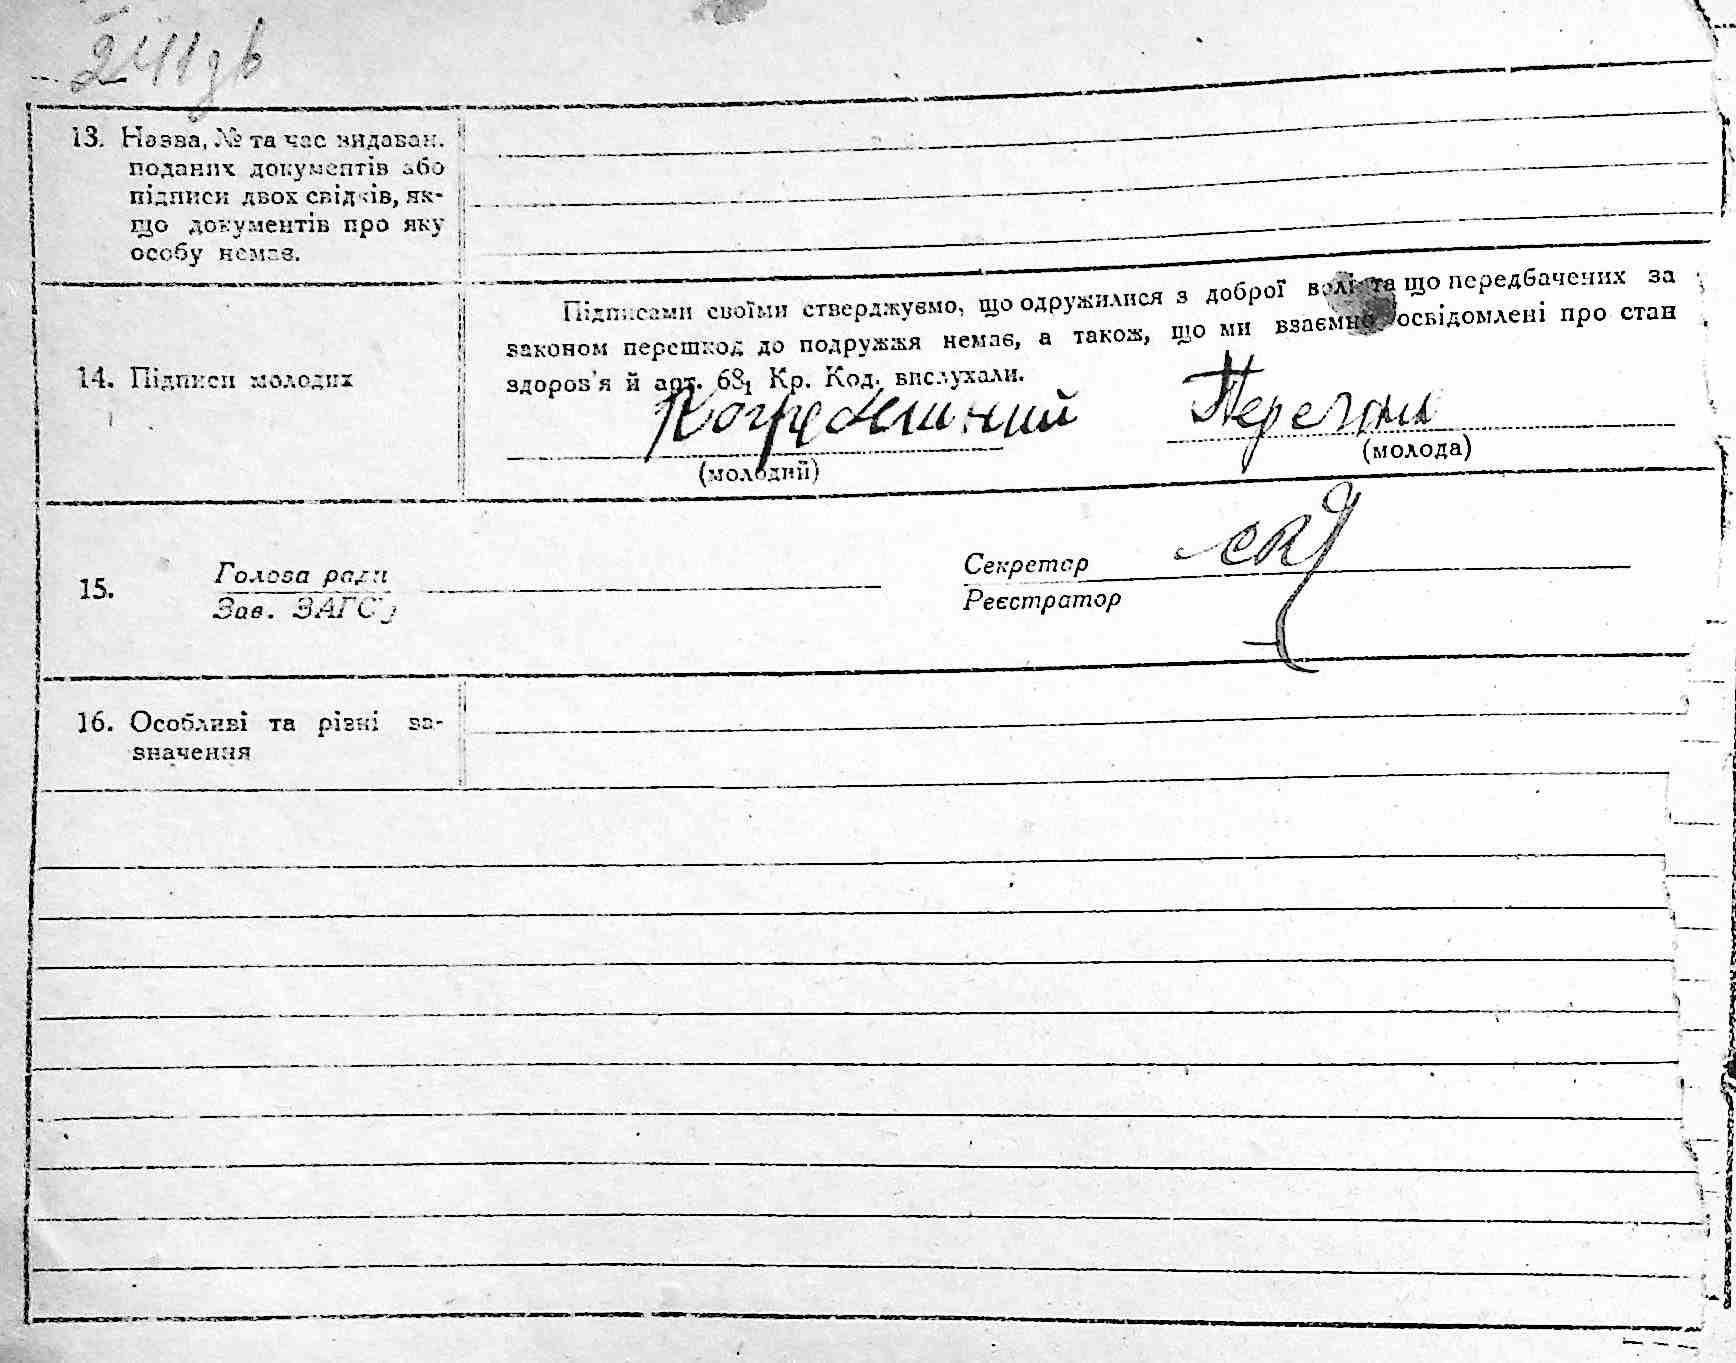 241 зв
13. Назва, № та час видаван.
поданих документів або
підписи двох свідків, як-
що документів про яку
особу немає.
Підписами своїми стверджуємо, що одружилися з доброї волі та що передбачених за
законом перешкод до подружжя немає, а також, що ми взаємно освідомлені про стан
здоров'я й арт. 68₁ Кр. Код. вислухали.
14. Підписи молодих
(молодий)
(молода)
15.
Голова ради
Зав. ЗАГС'у
Секретар
Реєстратор
16. Особливі та різні за-
значення